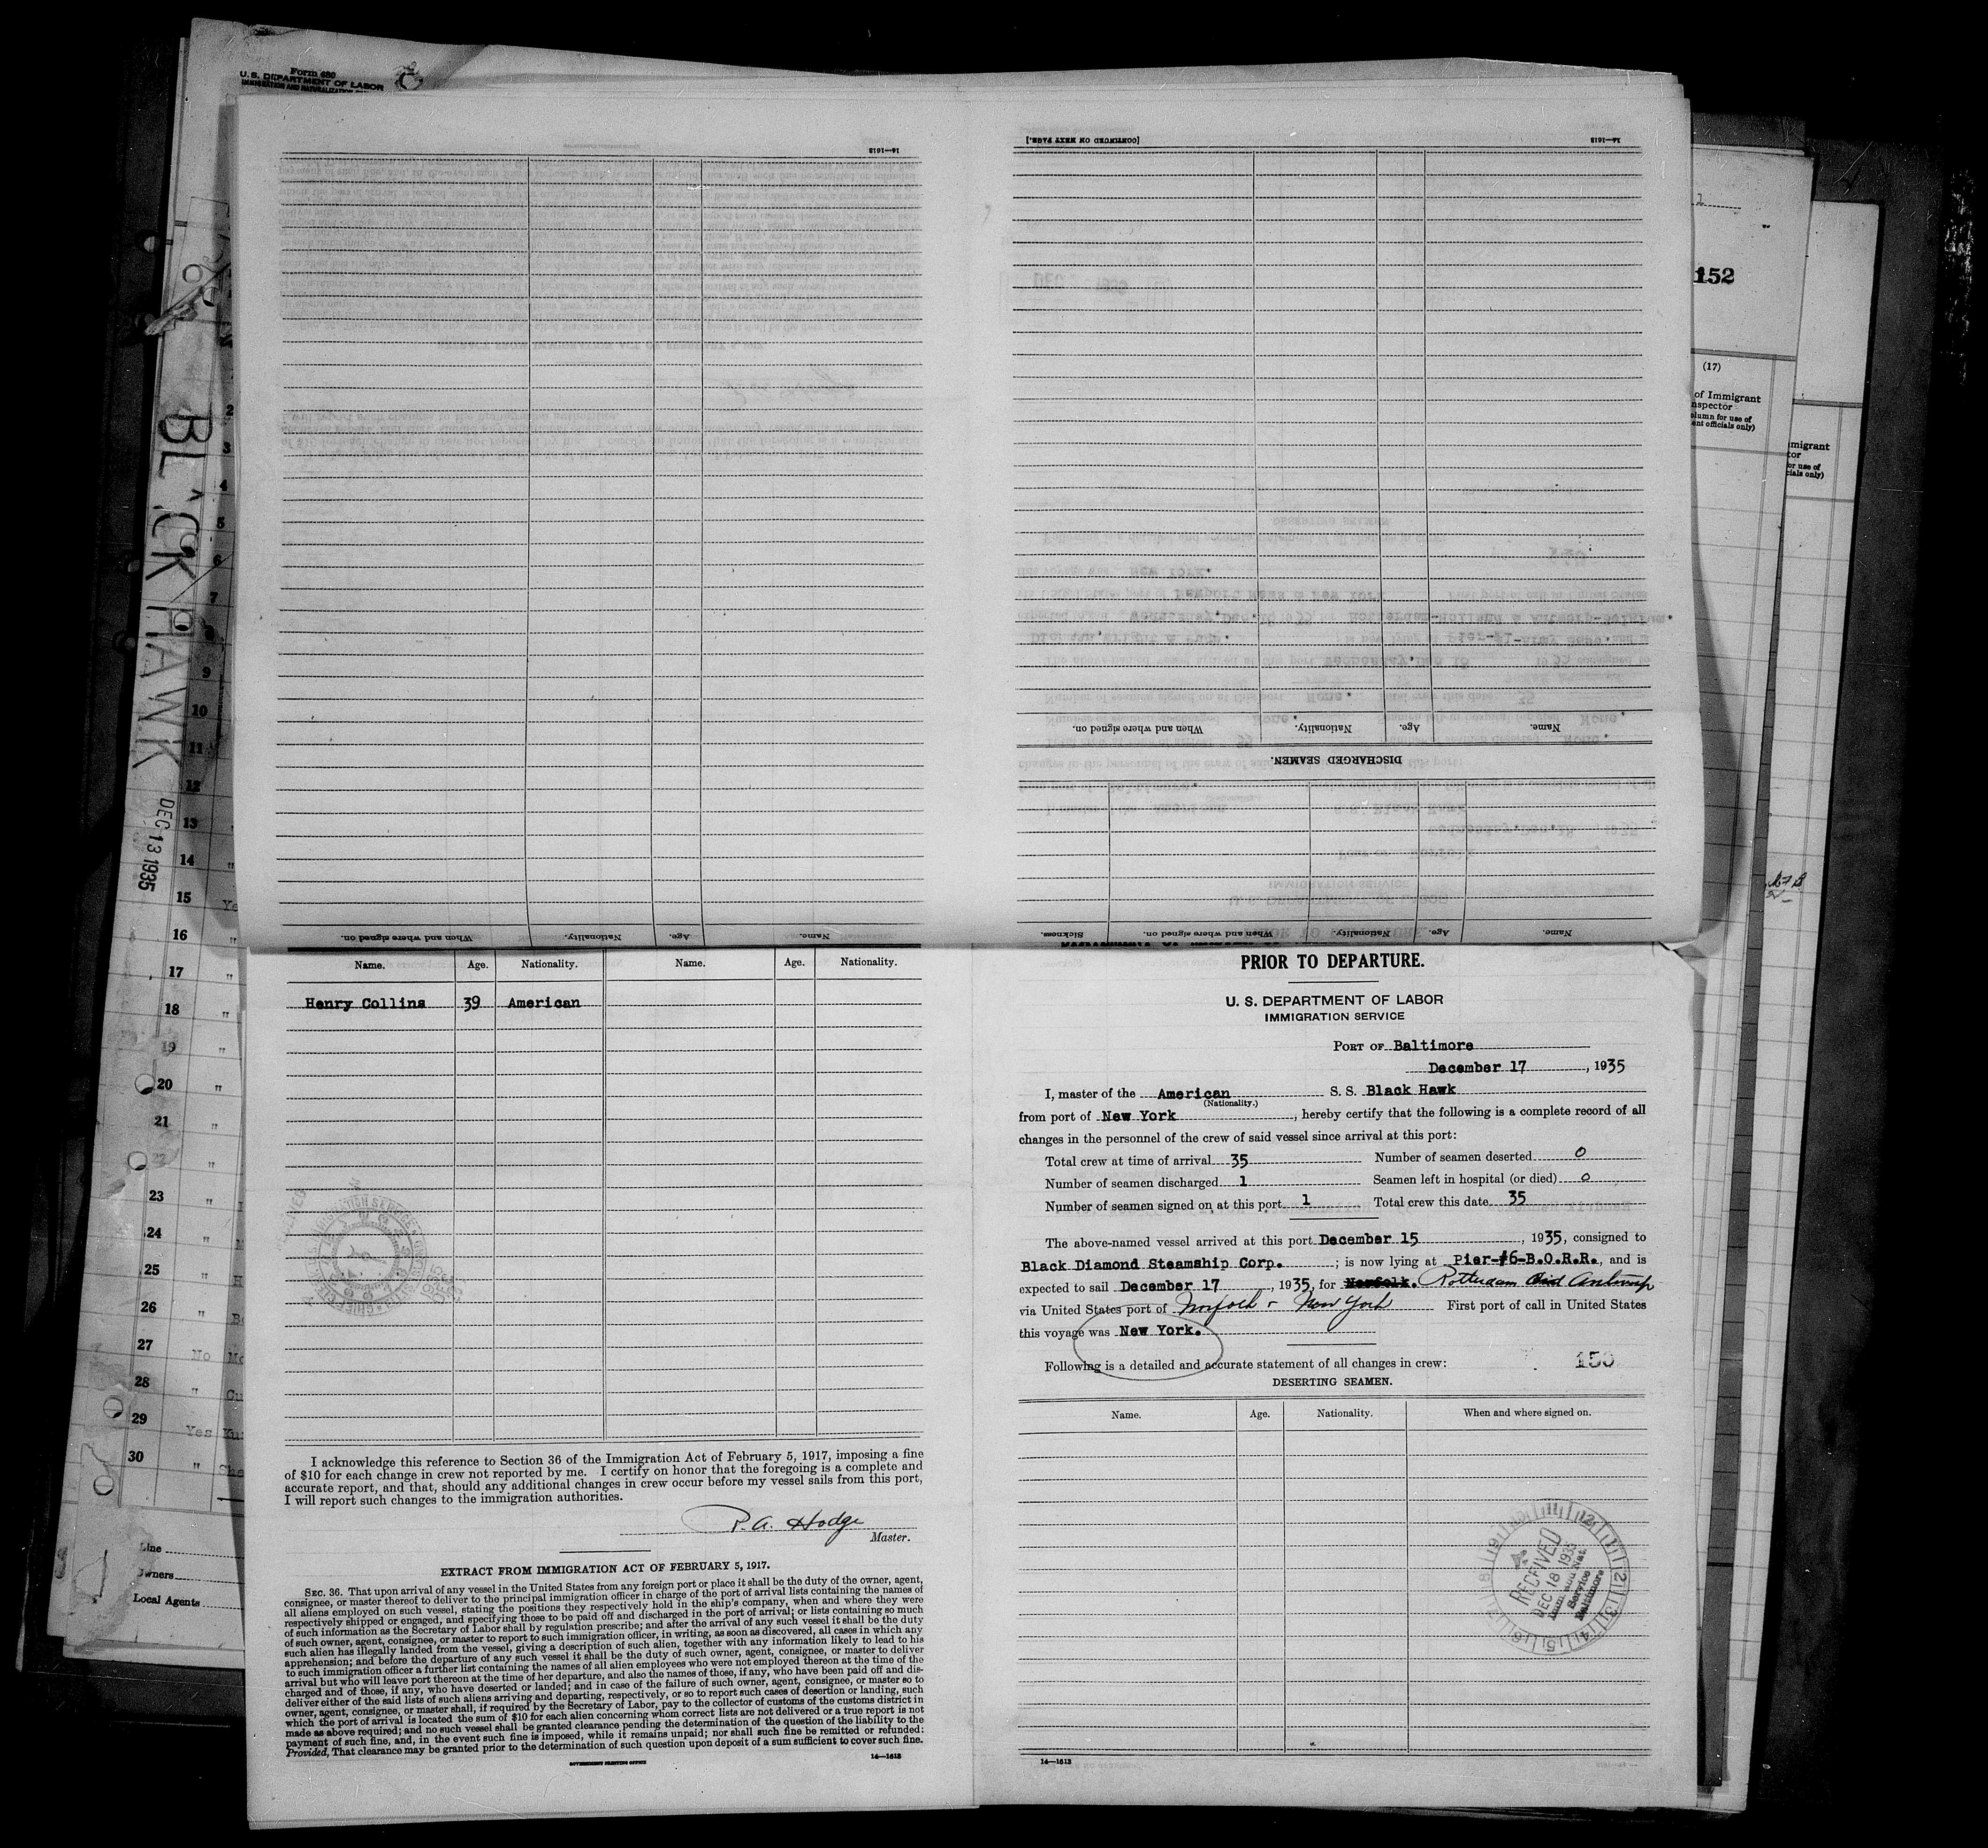 Form 680
U. S. DEPARTMENT OF LABOR
IMMIGRATION AND NATURALIZATION
BLACK HAWK
DEC 13 1935
2
3
4
5
6
7
8
9
10
11
12
13
14
15 Yes
16 "
17 "
18 "
19 "
20 "
21 "
22 "
23 "
24 "
25 "
26 "
27 No
28 "
29 Yes
30 "
Line
Owners
Local Agents
14—1613
Name. Age. Nationality. When and where signed on.
[CONTINUED ON NEXT PAGE.]
14—1613
DISCHARGED SEAMEN.
Name. Age. Nationality. When and where signed on.
Name. Age. Nationality. When and where signed on. Sickness.
152
(17)
of Immigrant
nspector
olumn for use of
ent officials only)
migrant
tor
or use of
cials only)
Name. Age. Nationality. Name. Age. Nationality.
Henry Collins 39 American
I acknowledge this reference to Section 36 of the Immigration Act of February 5, 1917, imposing a fine
of $10 for each change in crew not reported by me. I certify on honor that the foregoing is a complete and
accurate report, and that, should any additional changes in crew occur before my vessel sails from this port,
I will report such changes to the immigration authorities.
P. A. Hodge
Master.
EXTRACT FROM IMMIGRATION ACT OF FEBRUARY 5, 1917.
SEC. 36. That upon arrival of any vessel in the United States from any foreign port or place it shall be the duty of the owner, agent,
consignee, or master thereof to deliver to the principal immigration officer in charge of the port of arrival lists containing the names of
all aliens employed on such vessel, stating the positions they respectively hold in the ship's company, when and where they were
respectively shipped or engaged, and specifying those to be paid off and discharged in the port of arrival; or lists containing so much
of such information as the Secretary of Labor shall by regulation prescribe; and after the arrival of any such vessel it shall be the duty
of such owner, agent, consignee, or master to report to such immigration officer, in writing, as soon as discovered, all cases in which any
such alien has illegally landed from the vessel, giving a description of such alien, together with any information likely to lead to his
apprehension; and before the departure of any such vessel it shall be the duty of such owner, agent, consignee, or master to deliver
to such immigration officer a further list containing the names of all alien employees who were not employed thereon at the time of the
arrival but who will leave port thereon at the time of her departure, and also the names of those, if any, who have been paid off and dis-
charged and of those, if any, who have deserted or landed; and in case of the failure of such owner, agent, consignee, or master so to
deliver either of the said lists of such aliens arriving and departing, respectively, or so to report such cases of desertion or landing, such
owner, agent, consignee, or master shall, if required by the Secretary of Labor, pay to the collector of customs of the customs district in
which the port of arrival is located the sum of $10 for each alien concerning whom correct lists are not delivered or a true report is not
made as above required; and no such vessel shall be granted clearance pending the determination of the question of the liability to the
payment of such fine, and, in the event such fine is imposed, while it remains unpaid; nor shall such fine be remitted or refunded:
Provided, That clearance may be granted prior to the determination of such question upon deposit of a sum sufficient to cover such fine.
GOVERNMENT PRINTING OFFICE 14—1613
PRIOR TO DEPARTURE.
U. S. DEPARTMENT OF LABOR
IMMIGRATION SERVICE
PORT OF Baltimore
December 17, 1935
I, master of the American S. S. Black Hawk
(Nationality.)
from port of New York, hereby certify that the following is a complete record of all
changes in the personnel of the crew of said vessel since arrival at this port:
Total crew at time of arrival 35 Number of seamen deserted 0
Number of seamen discharged 1 Seamen left in hospital (or died) 0
Number of seamen signed on at this port 1 Total crew this date 35
The above-named vessel arrived at this port December 15, 1935, consigned to
Black Diamond Steamship Corp. ; is now lying at Pier-#6-B.O.R.R., and is
expected to sail December 17, 1935, for Norfolk. Rotterdam and Antwerp
via United States port of Norfolk - New York First port of call in United States
this voyage was New York.
Following is a detailed and accurate statement of all changes in crew: 150
DESERTING SEAMEN.
Name. Age. Nationality. When and where signed on.
RECEIVED
DEC 18 1935
Imm. and Nat.
Service
Baltimore
14—1613